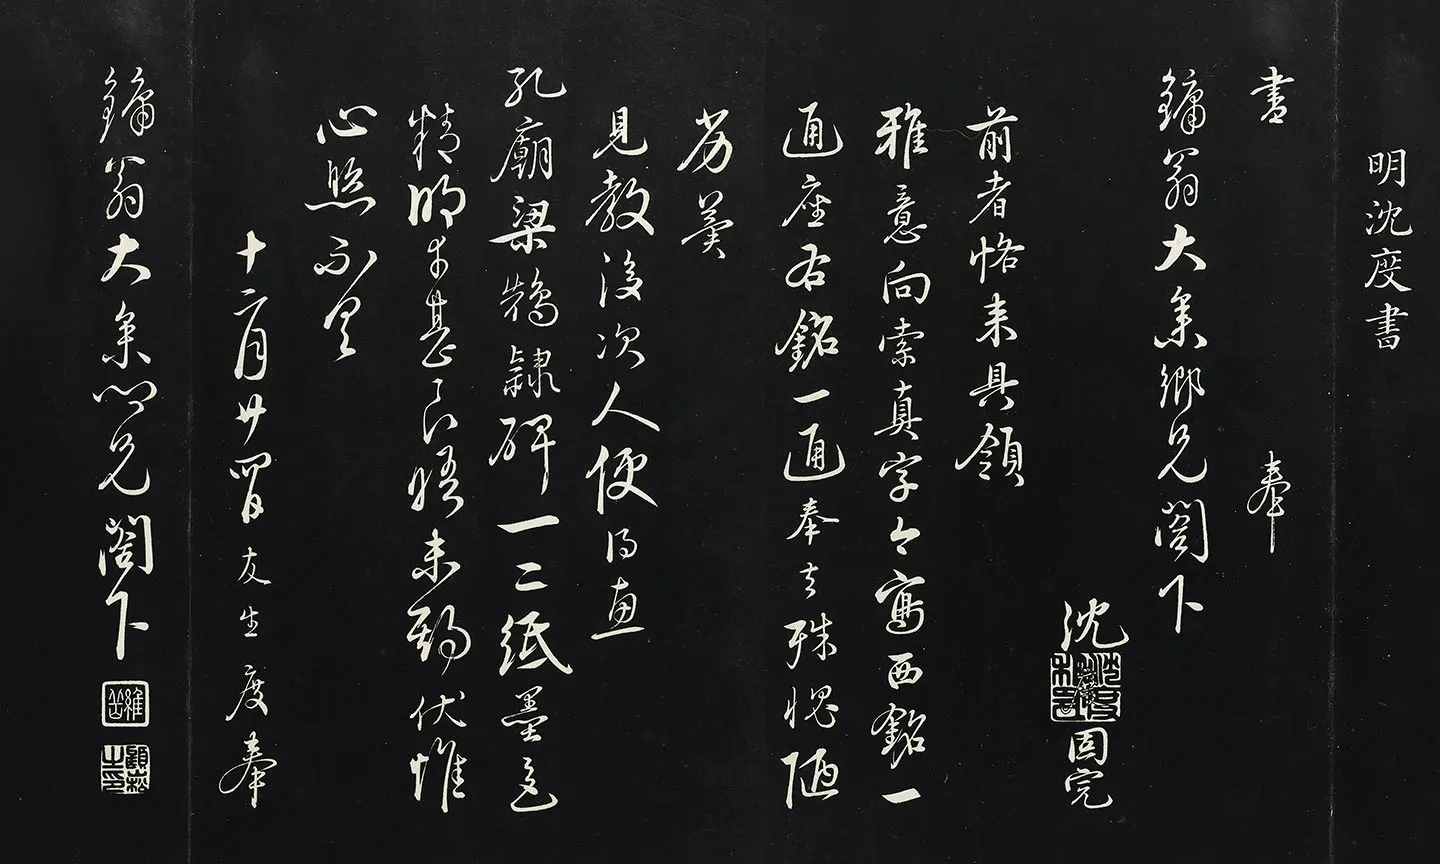 明沈度書
書 奉
鏞翁大參鄉兄閣下
沈 固完
前者恪来具領
雅意向索真字今寫西銘一
通座右銘一通奉去殊愧陋
劣冀
見教後次人便得惠
孔廟梁鵠隸碑一二紙墨色
精明幸甚良晤未期伏惟
心照不具
十二月廿四日友生度奉
鏞翁大參鄉兄閣下